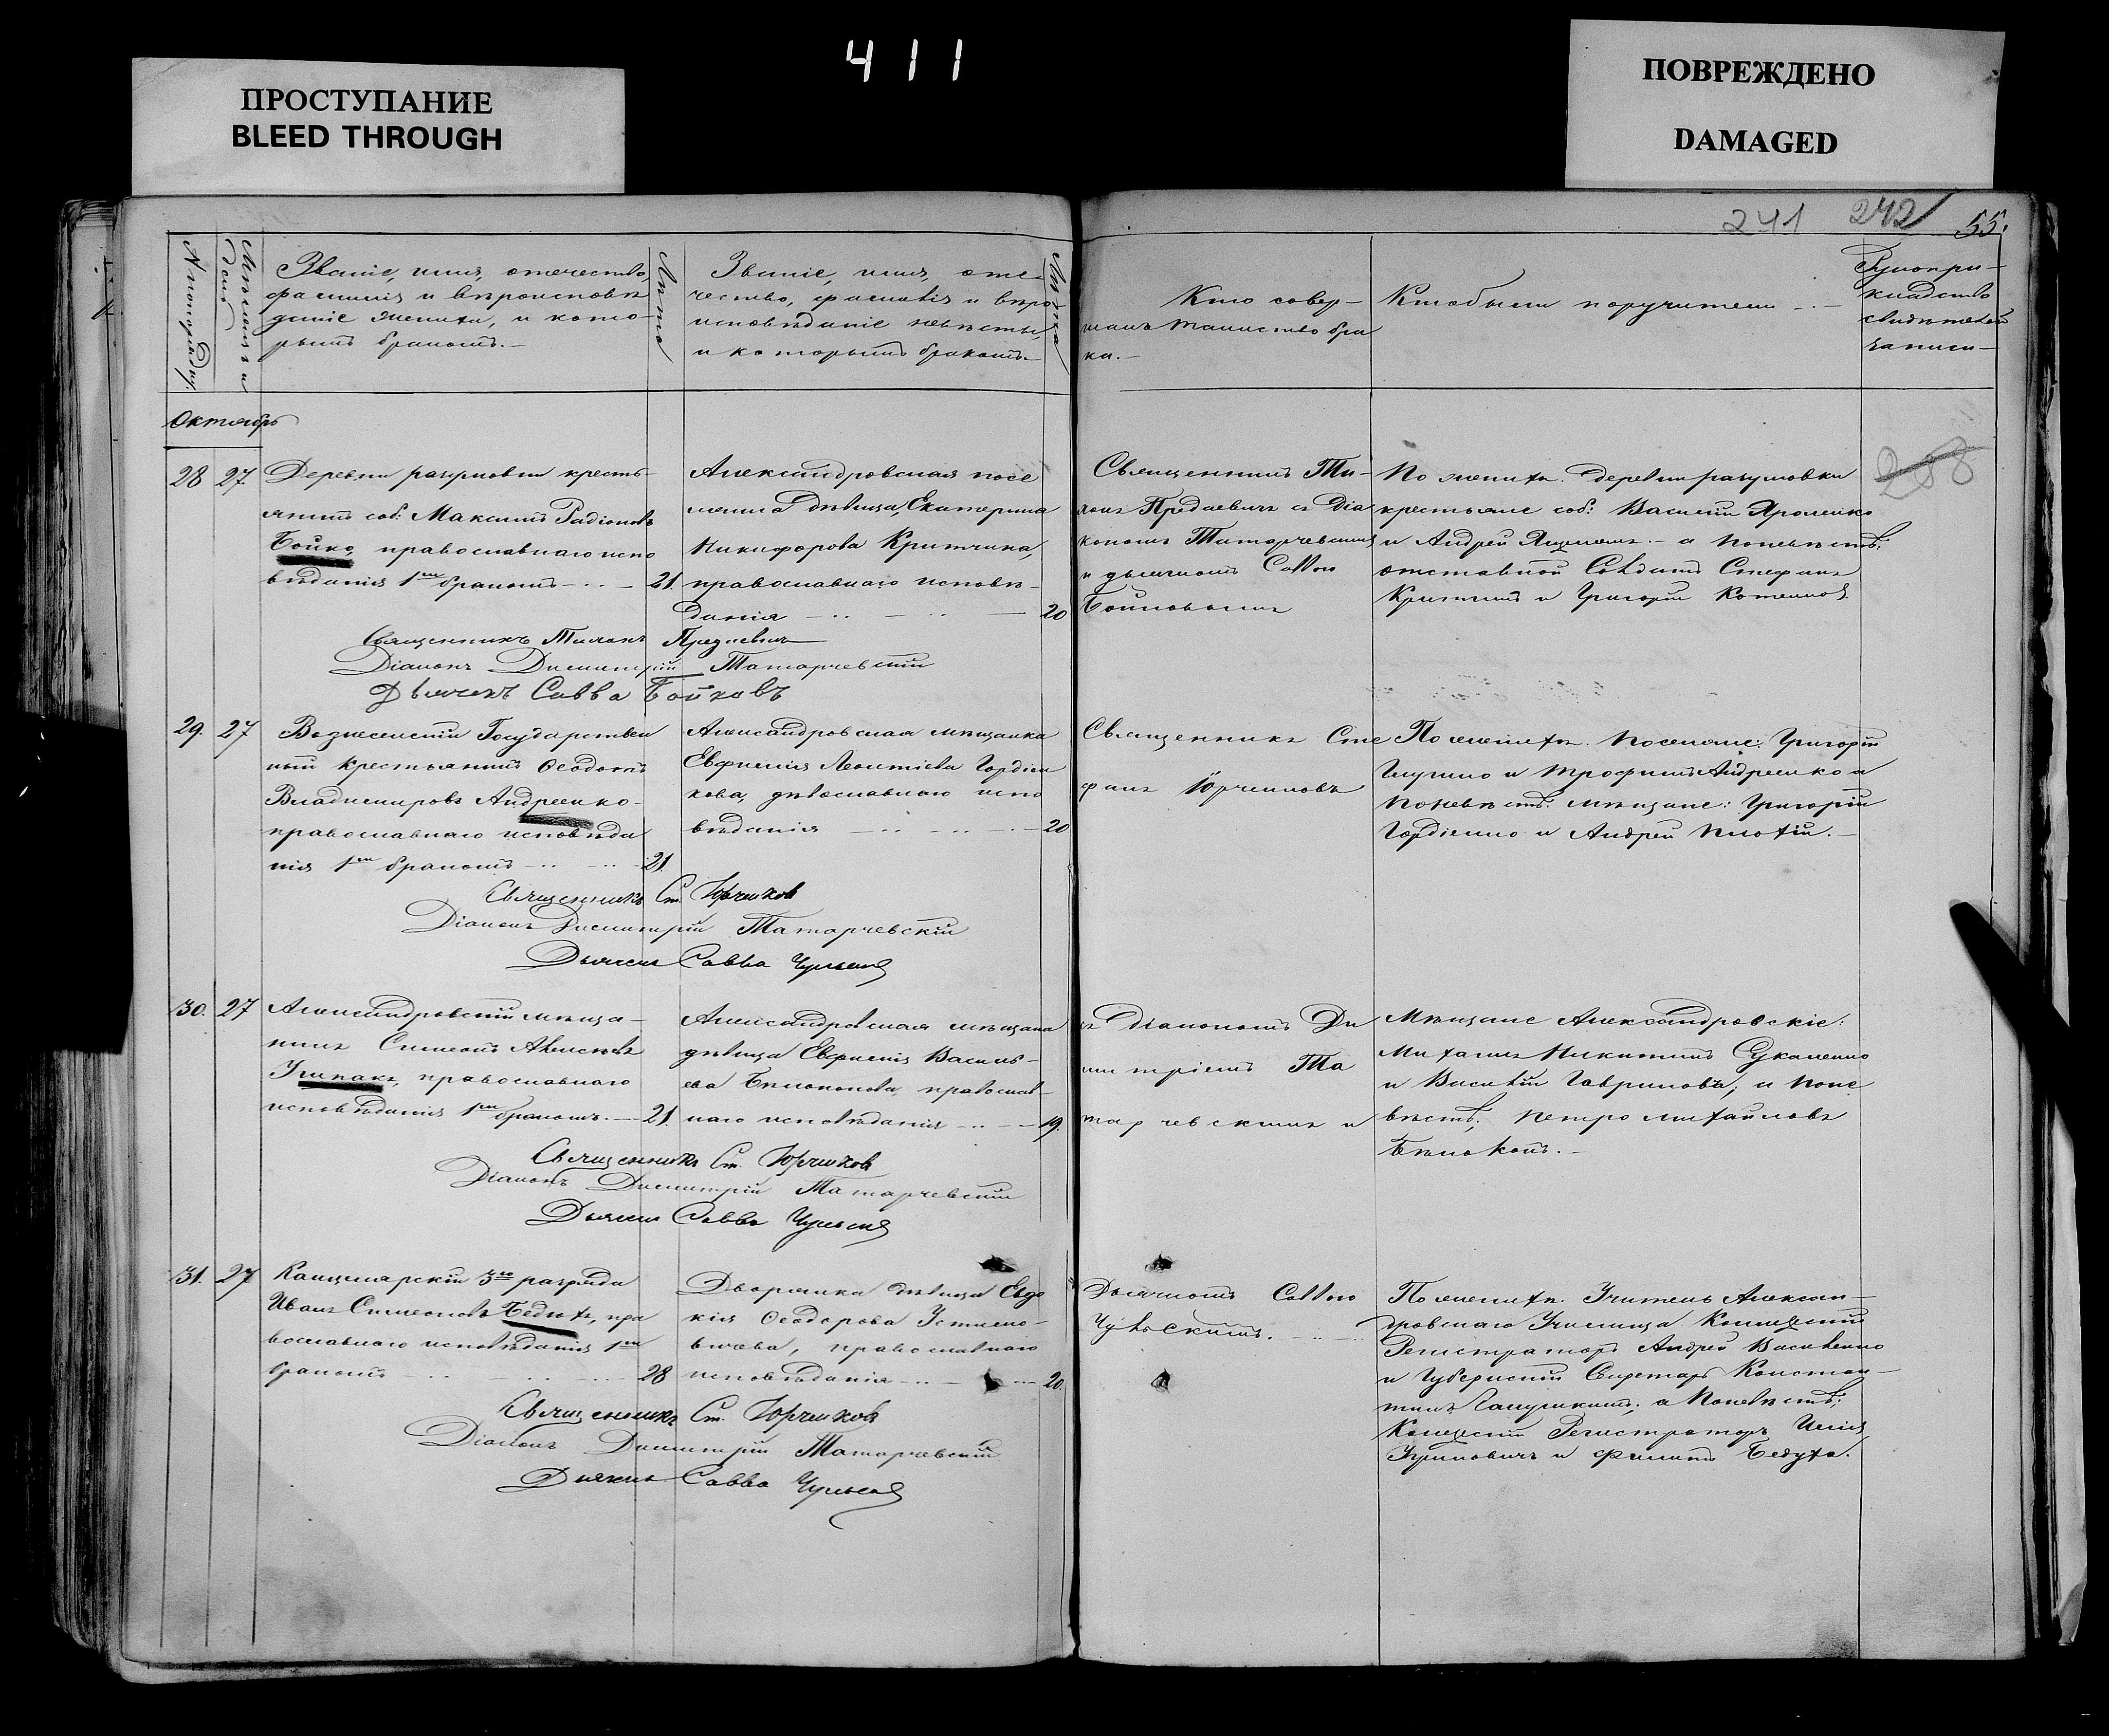 411
ПРОСТУПАНИЕ
BLEED THROUGH
ПОВРЕЖДЕНО
DAMAGED
241 242 55.
№ по порядку.
Мѣсяцъ и день
Званіе, имя, отечество,
фамилія и вѣроисповѣ
даніе жениха, и кото-
рымъ бракомъ.-
Лѣта
Званіе, имя, оте-
чество, фамилія и вѣро
исповѣданіе невѣсты,
и которымъ бракомъ.-
Лѣта
Кто совер-
шалъ таинство бра
ка.-
Кто были поручители
Рукопри-
кладство
свидѣтелей
записи-
Октябрь
28 27.
Деревни Разумовки кресть-
янинъ соб: Максимъ Радіоновъ
Бойко, православнаго испо
вѣданія 1мъ бракомъ 21.
Александровская посе
дѣвица, Екатерина
Никифорова
православнаго исповѣ-
данія 20
Священникъ Ти-
съ Діа
кономъ Татарчевскимъ
и дьячкомъ Саввою
Бойковымъ
По женихѣ. деревни Разумовки
крестьяне соб: Василій
и Андрей - а по невѣстѣ:
отставной Солдатъ Стефанъ
и Григорій
288
Священникъ
Діаконъ Димитрій Татарчевскій
Дьячекъ Савва Бойковъ
29. 27
Вознесенскій Государствен
ный крестьянинъ Ѳеодотъ
Владимировъ Андреенко-
православнаго исповѣда
нія 1мъ бракомъ 21.
Александровская мѣщанка
Евфимія Леонтіева Гордіен
кова, испо
вѣданія 20
Священникъ Сте
фанъ Юрченковъ
По женихѣ. поселяне: Григорій
и Трофимъ Андреенко и
по невѣстѣ: мѣщане: Григорій
Гордіенко и Андрей
Священникъ Ст. Юрченковъ
Діаконъ Димитрій Татарчевскій
Дьячекъ Савва
30. 27
Александровскій мѣща-
нинъ Симеонъ
православнаго
исповѣданія 1мъ бракомъ. 21.
Александровская мѣщанка
дѣвица Евфимія Василь-
ева Бѣлоконова, православ-
наго исповѣданія 19.
съ Діакономъ Ди
митріемъ Та
тарчевскимъ и
Мѣщане Александровскіе:
Михаилъ Никитинъ
и Василій Гавриловъ; и по не
вѣстѣ; Петро Михайловъ
Бѣлоконь.-
Священникъ Ст. Юрченковъ
Діаконъ Димитрій Татарчевскій
Дьячекъ Савва
31. 27
Канцелярскій 3го разряда
Иванъ Симеоновъ Бедуха, пра
вославнаго исповѣданія 1мъ
бракомъ 28
Дворянка дѣвица Евдо
кія Ѳеодорова Устимо-
вичева, православнаго
исповѣданія 20.
Дьячкомъ Саввою
По женихѣ. Учитель Алексан-
дровскаго Училища Коллежскій
Регистраторъ Андрей Василенко
и Губернскій Секретарь Констан-
тинъ а по невѣстѣ;
Коллежскій Регистраторъ
и Филиппъ Бедуха.
Священникъ Ст. Юрченковъ
Діаконъ Димитрій Татарчевскій
Дьячекъ Савва